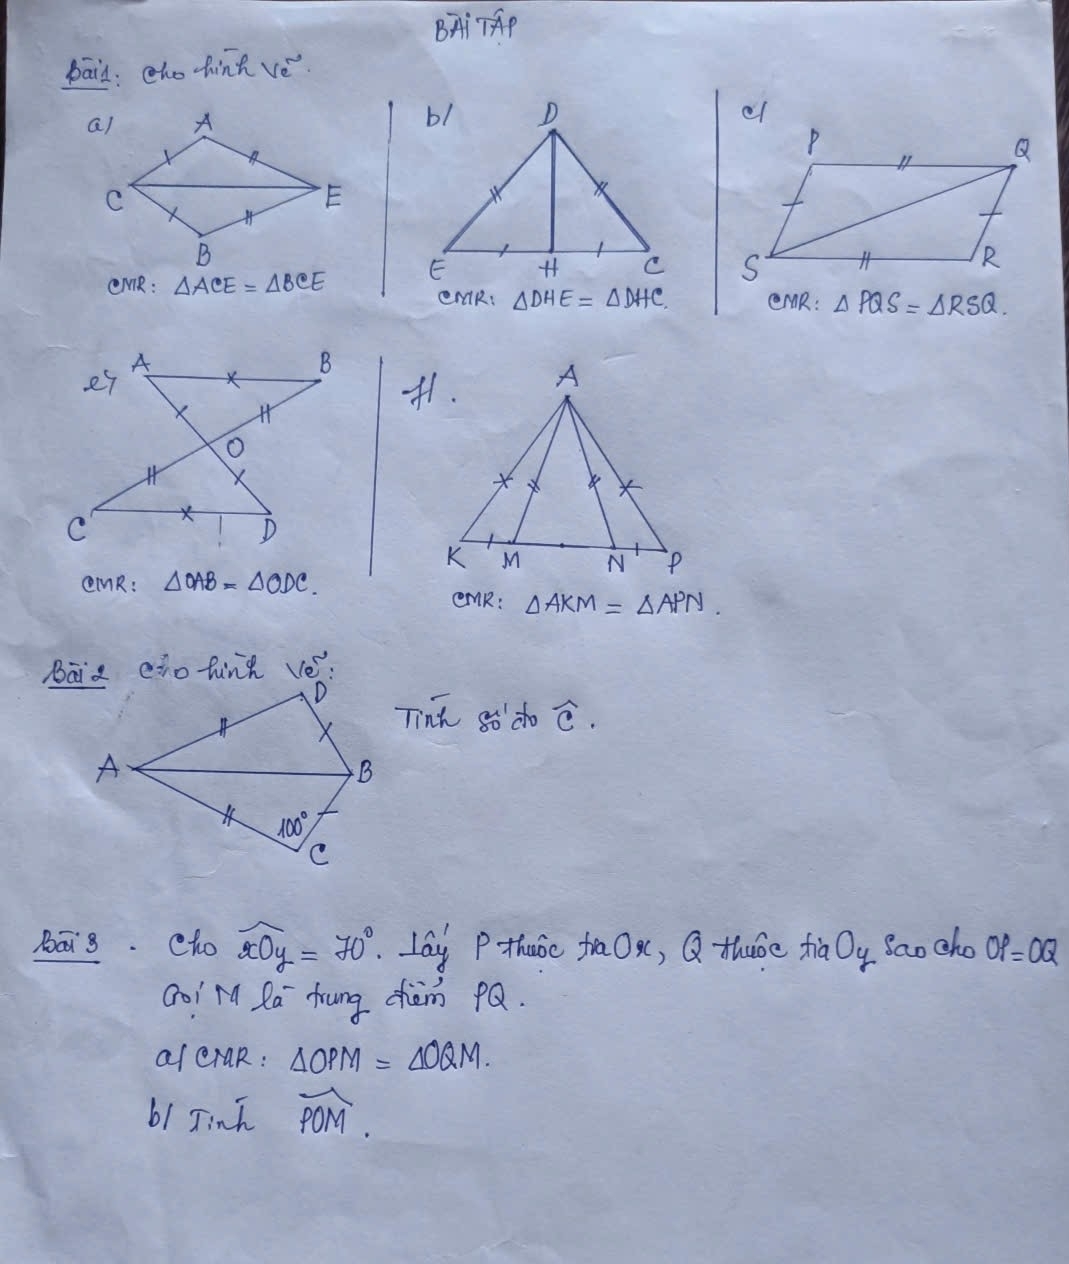 BÀI TẬP
Bài 1: Cho hình vẽ.
a/
A
C
E
B
CMR: ΔACE = ΔBCE
b/
D
E
H
C
CMR: ΔDHE = ΔDHC.
c/
P
Q
S
R
CMR: Δ PQS = ΔRSQ.
e/
A
B
O
C
D
CMR: ΔOAB = ΔODC.
f/.
A
K
M
N
P
CMR: ΔAKM = ΔAPN.
Bài 2 Cho hình vẽ:
D
A
B
100°
C
Tính số đo Ĉ.
Bài 3. Cho xOy = 70°. Lấy P thuộc tia Ox, Q thuộc tia Oy sao cho OP=OQ
Gọi M là trung điểm PQ.
a/ CMR: ΔOPM = ΔOQM.
b/ Tính POM.